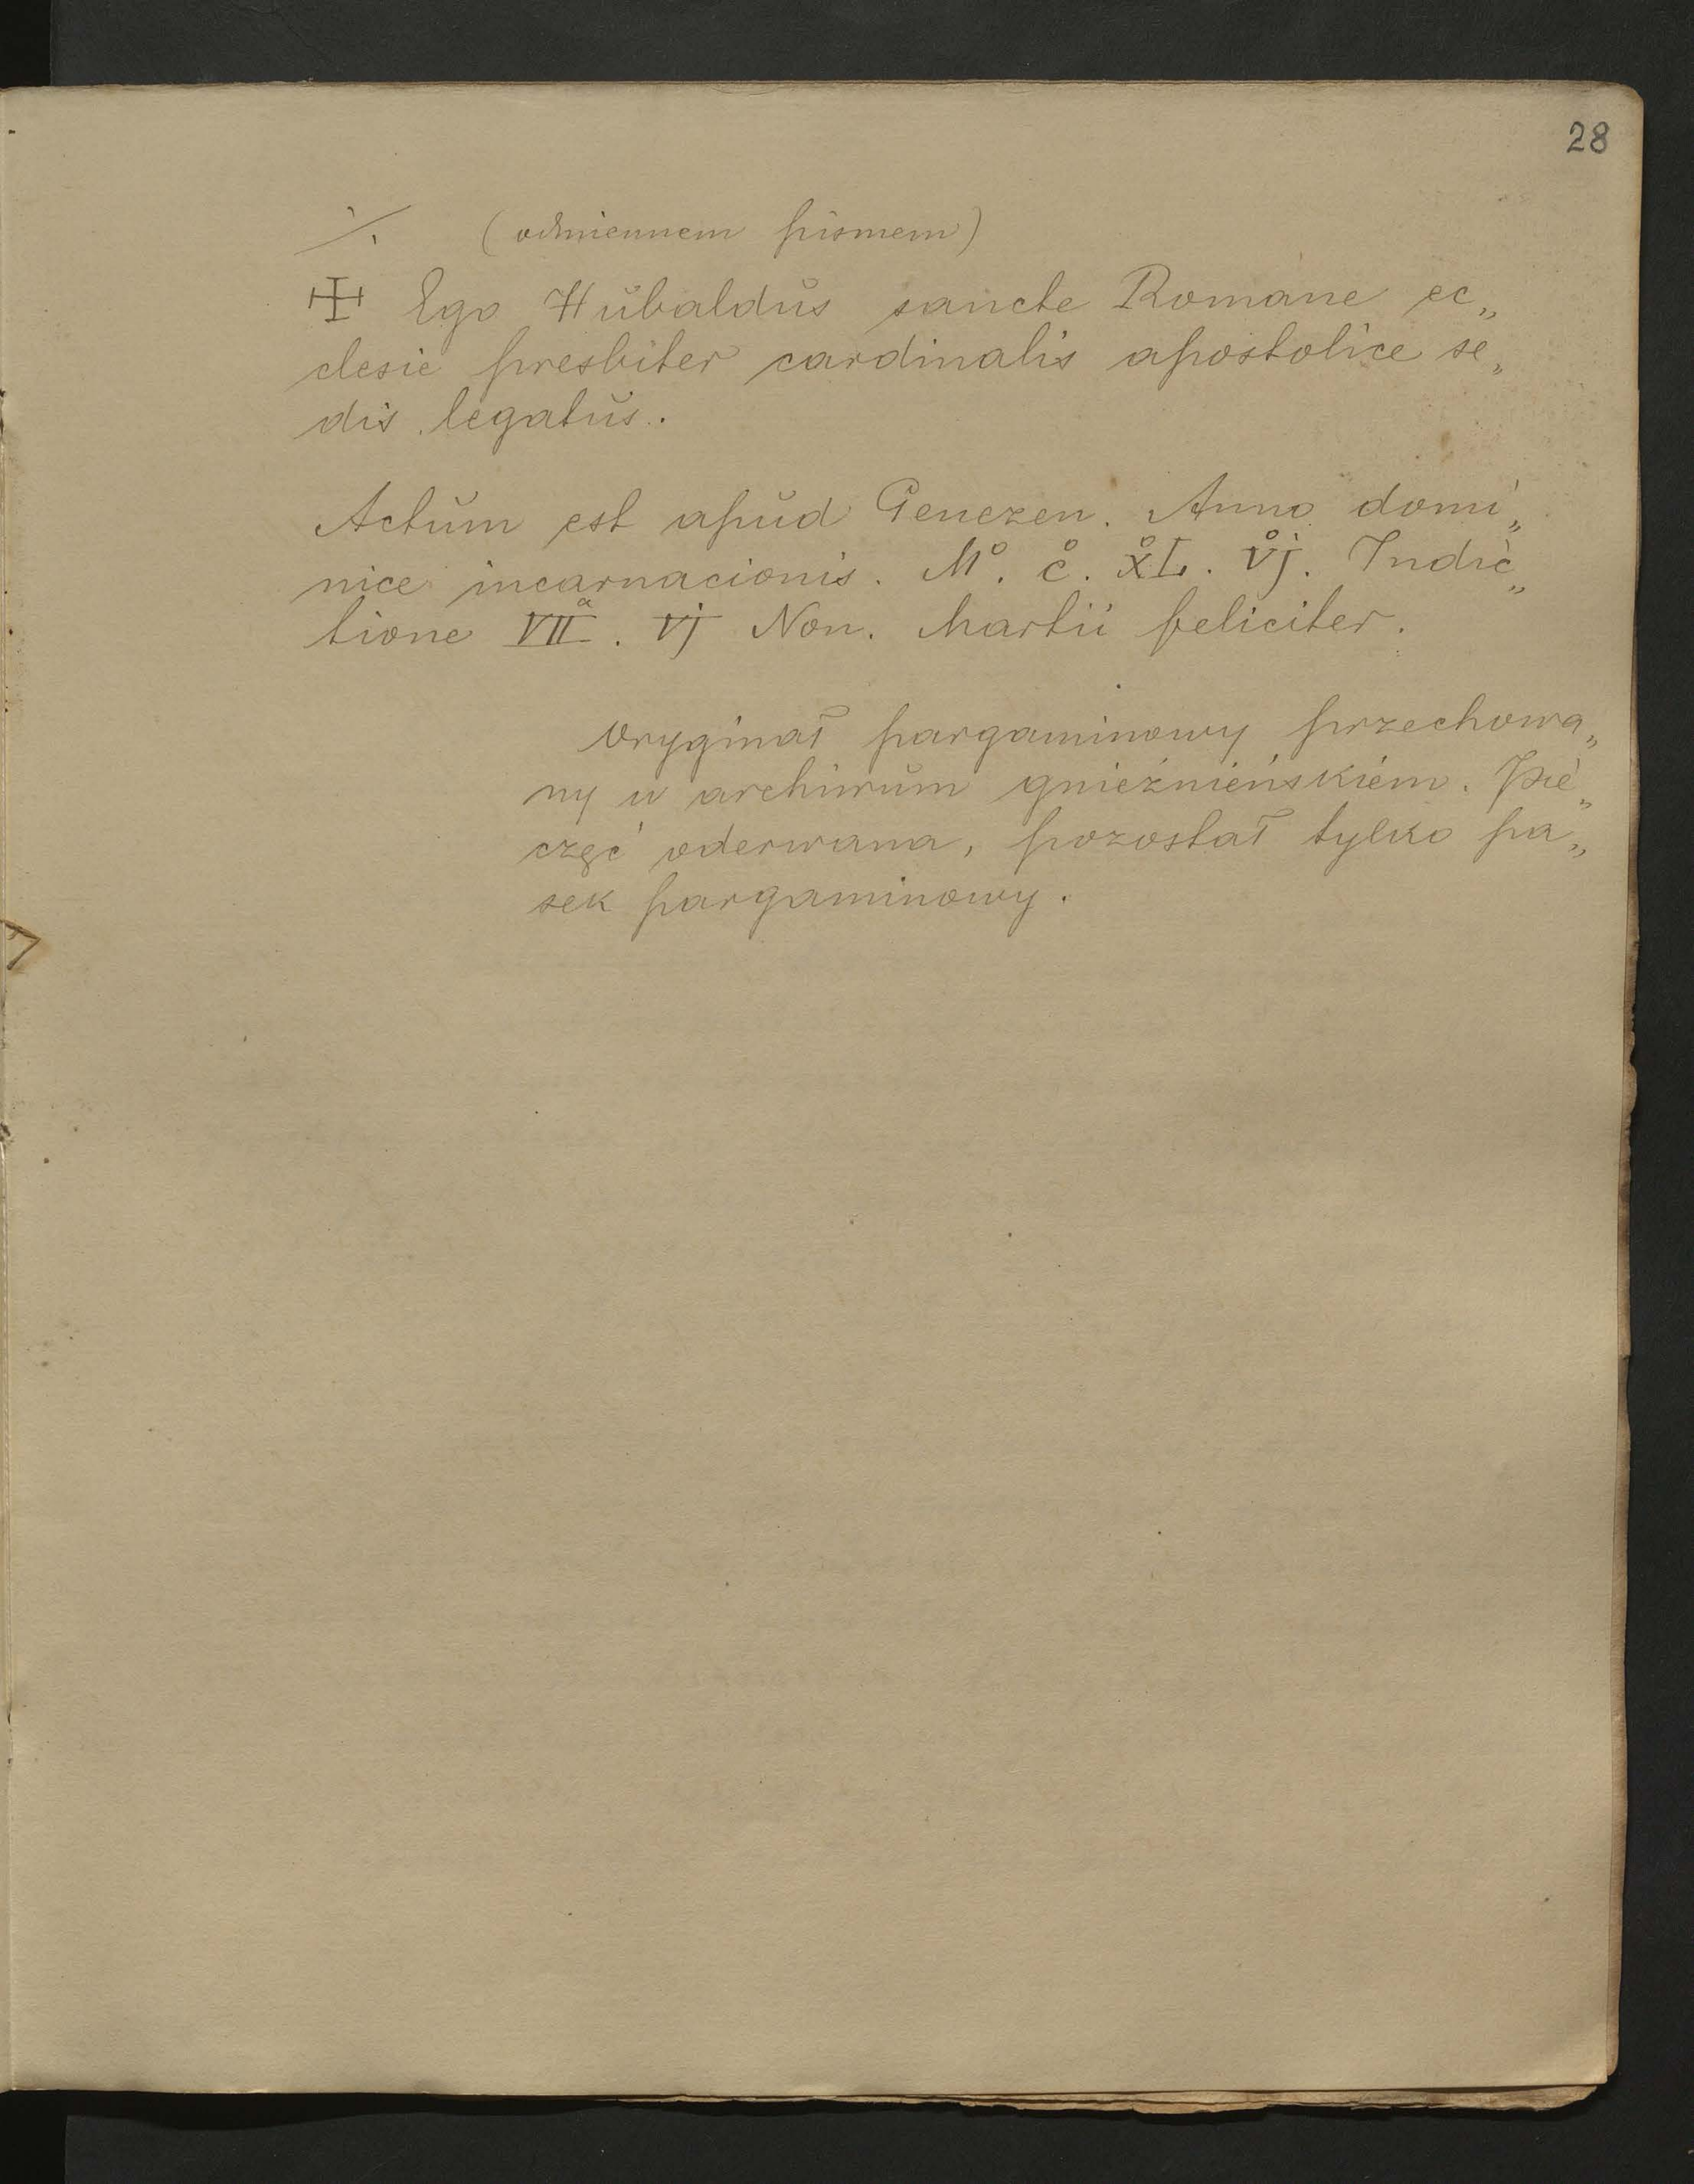 28
·/. (odmiennem pismem)
☩ Ego Hŭbaldŭs sancte Romane ec„
clesie presbiter cardinalis apostolice se„
dis legatŭs.
Actŭm est apŭd Genezen. Anno domi„
nice incarnacionis. M°. c°. xL°. vj°. Indic„
tione VIIª. vj Non. Martii feliciter.
Oryginał pargaminowy przechowa„
ny w archiwŭm gnieźnieńskiém. Pie„
częć oderwana, pozostał tylko pa„
sek pargaminowy.